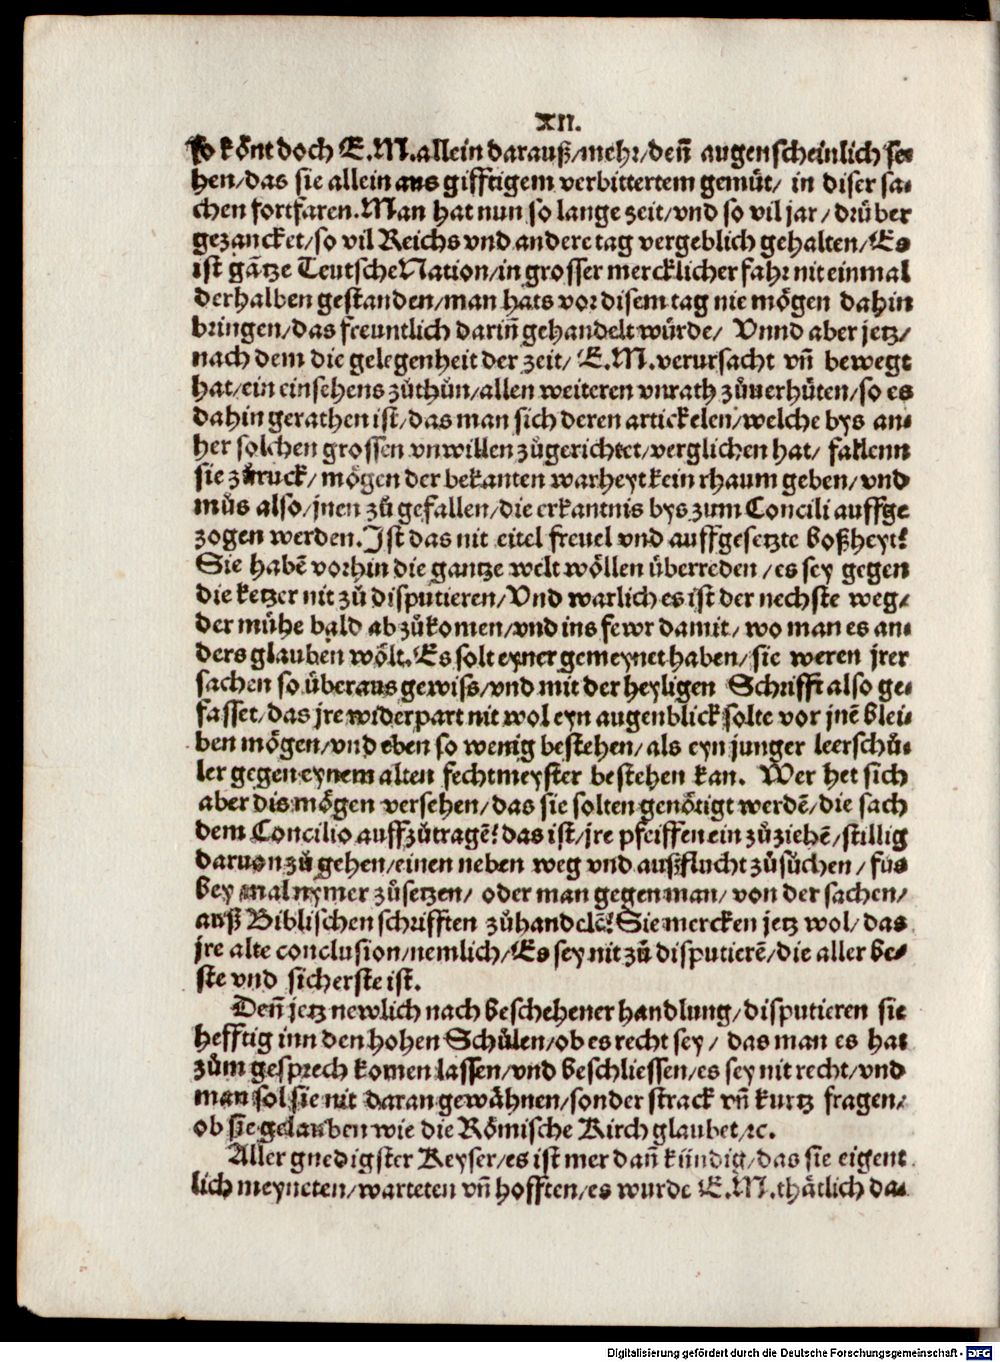 XII.
so koͤnt doch E.M.allein darauß/mehr/deñ augenscheinlich se⸗
hen/das sie allein aus gifftigem verbittertem gemuͤt/ in diser sa⸗
chen fortfaren.Man hat nun so lange zeit/vnd so vil jar/druͤber
gezancket/so vil Reichs vnd andere tag vergeblich gehalten/Es
ist gãtze Teutsche Nation/in grosser mercklicher fahr nit einmal
derhalben gestanden/man hats vor disem tag nie moͤgen dahin
bringen/das freuntlich dariñ gehandelt wuͤrde/ Vnnd aber jetz/
nach dem die gelegenheit der zeit/ E.M.verursacht vñ bewegt
hat/ein einsehens zůthůn/allen weiteren vnrath zůuerhuͤten/so es
dahin gerathen ist/das man sich deren artickelen/welche bys an⸗
her solchen grossen vnwillen zůgerichtet/verglichen hat/ fallenn
sie zůruck/ moͤgen der bekanten warheyt kein rhaum geben/vnd
můs also/jnen zů gefallen/die erkantnis bys zum Concili auffge
zogen werden.Ist das nit eitel freuel vnd auffgesetzte boßheyt?
Sie habẽ vorhin die gantze welt woͤllen uͤberreden/es sey gegen
die ketzer nit zů disputieren/Vnd warlich es ist der nechste weg/
der muͤhe bald ab zůkomen/vnd ins fewr damit/ wo man es an⸗
ders glauben woͤlt.Es solt eyner gemeynet haben/sie weren jrer
sachen so uͤberaus gewiss/vnd mit der heyligen Schrifft also ge⸗
fasset/das jre widerpart nit wol eyn augenblick solte vor jnẽ blei⸗
ben moͤgen/vnd eben so wenig bestehen/als eyn junger leerschů⸗
ler gegen eynem alten fechtmeyster bestehen kan. Wer het sich
aber dis moͤgen versehen/das sie solten genoͤtigt werdẽ/die sach
dem Concilio auffzůtragẽ?das ist/jre pfeiffen ein zůziehẽ/stillig
daruon zů gehen/einen neben weg vnd außflucht zůsůchen/fus
bey mal nymer zůsetzen/ oder man gegen man/von der sachen/
auß Biblischen schrifften zůhandelẽ?Sie mercken jetz wol/das
jre alte conclusion/nemlich/Es sey nit zů disputierẽ/die aller be⸗
ste vnd sicherste ist.
Deñ jetz newlich nach beschehener handlung/disputieren sie
hefftig inn den hohen Schůlen/ob es recht sey/ das man es hat
zům gesprech komen lassen/vnd beschliessen/es sey nit recht/vnd
man sol sie nit daran gewaͤhnen/sonder strack vñ kurtz fragen/
ob sie gelauben wie die Roͤmische Kirch glaubet/ꝛc.
Aller gnedigster Keyser/es ist mer dañ kuͤndig/das sie eigent
lich meyneten/warteten vñ hofften/es wurde E.M.thaͤtlich da⸗
Digitalisierung gefördert durch die Deutsche Forschungsgemeinschaft - DFG